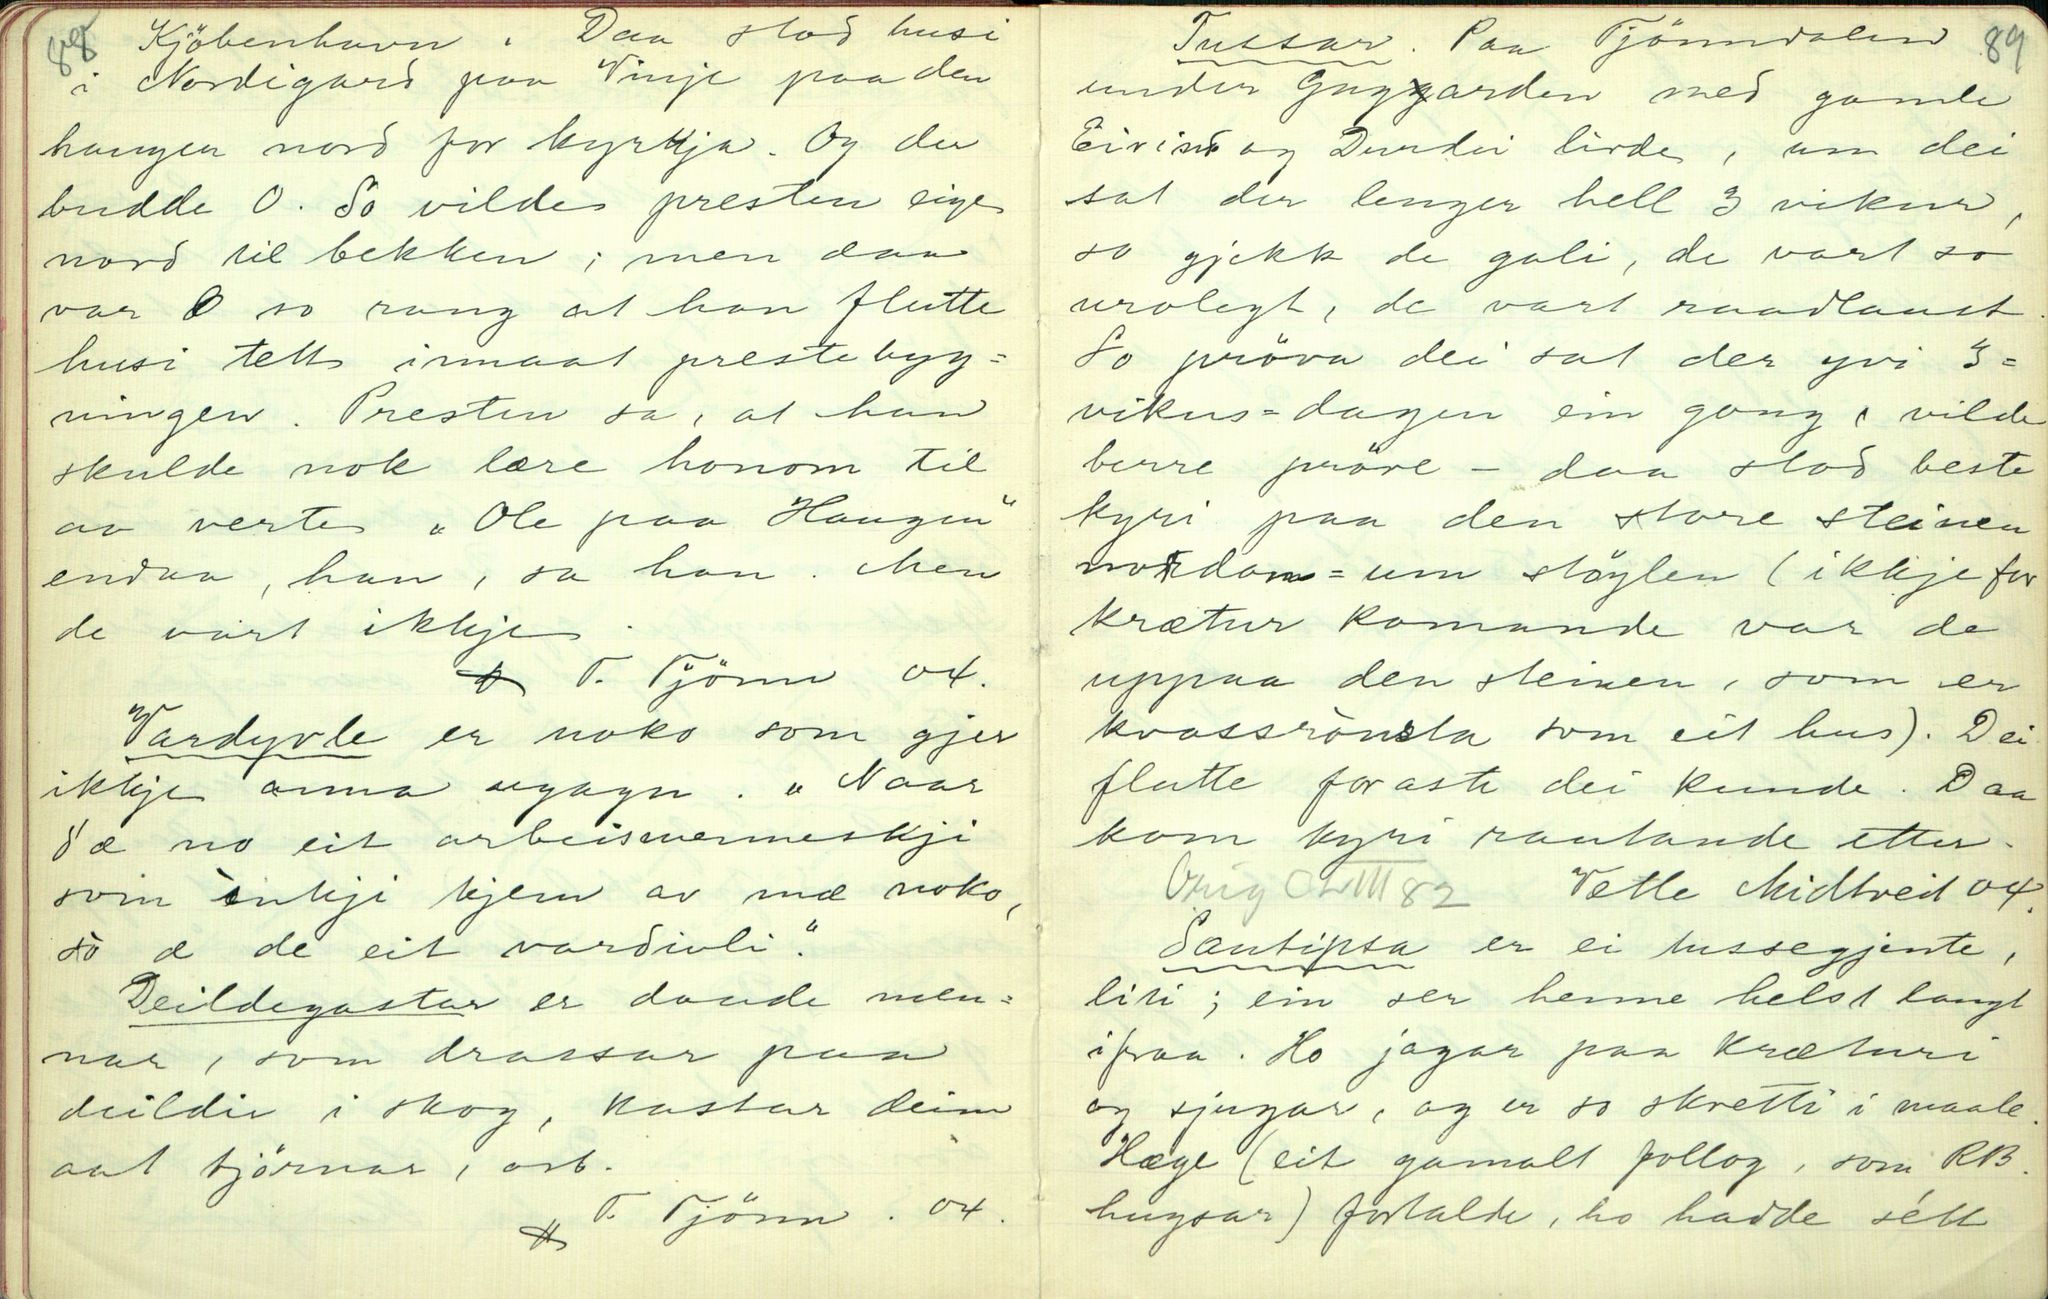 88
Kjöbenhavn. Daa stod husi
i Nordigard paa Vinje paa den
haugen nord for kyrkja. Og der
budde O. So vilde presten eige
nord til bekken; men daa
var O so rang at han flutte
husi tett innaat prestebyg=
ningen. Presten sa, at han
skulde nok lære honom til
av verte „Ole paa Haugen“
endaa, han, sa han. Men
de vart ikkje.
T. Tjönn 04.
Vardyvle er noko som gjer
ikkje anna ugagn. „Naar
dæ no eit arbeismenneskji
som inkji kjem av mæ noko,
so æ de eit vardivli“.
Deildegastar er daude men=
nar, som drassar paa
deildir i skog, kastar deim
aat tjörnar, osb.
T. Tjönn. 04.
89
Tussar. Paa Tjönndalen
under Guggarden med gamle
Eivind og Durdei livde, um dei
sat der lenger hell 3 vikur,
so gjekk de gali, de vart so
urolegt, de vart raadlaust.
So pröva dei sat der yvi 3=
vikus=dagen ein gong, vilde
berre pröve – daa stod beste
kyri paa den store steinen
nordan=um stöylen (ikkje for
krætur komande var de
uppaa den steinen, som er
kvassrönsla som eit hus). Dei
flutte foraste dei kunde. Daa
kom kyri rautande etter.
Orig CLVIII 82 Vetle Midtveit 04.
Sæntipsa er ei tussegjente,
liti; ein ser henne helst langt
ifraa. Ho jagar paa kræturi
og sjugar, og er so skretti i maale.
Hæge (eit gamalt follog, som RB.
hugsar) fortalde, ho hadde sétt